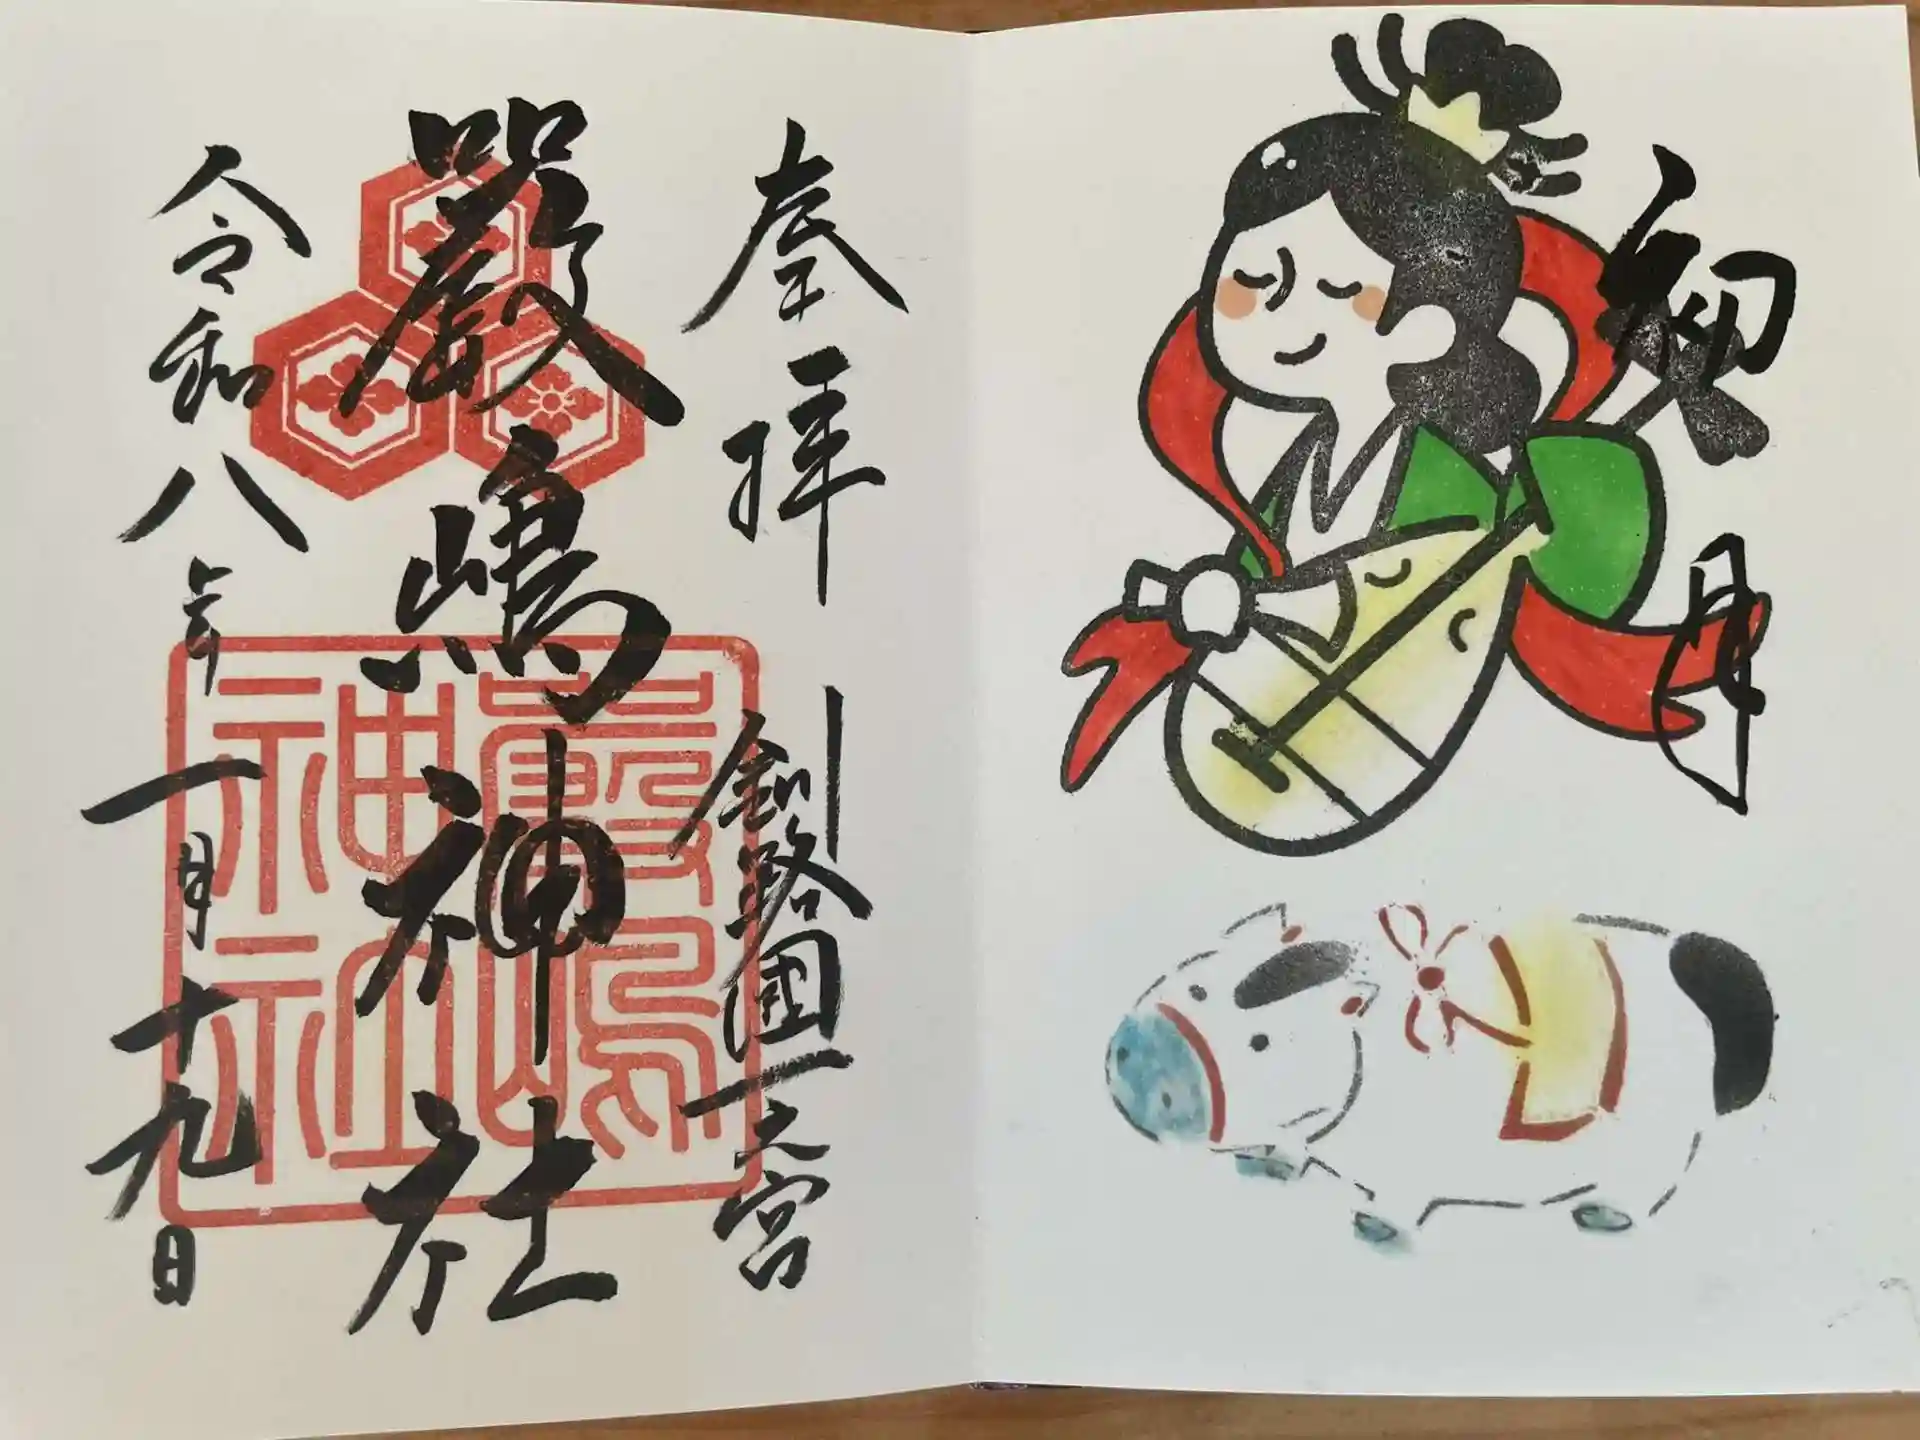 初月
奉拝
釧路國一之宮
嚴嶋神社
令和八年一月十九日
嚴嶋
神社